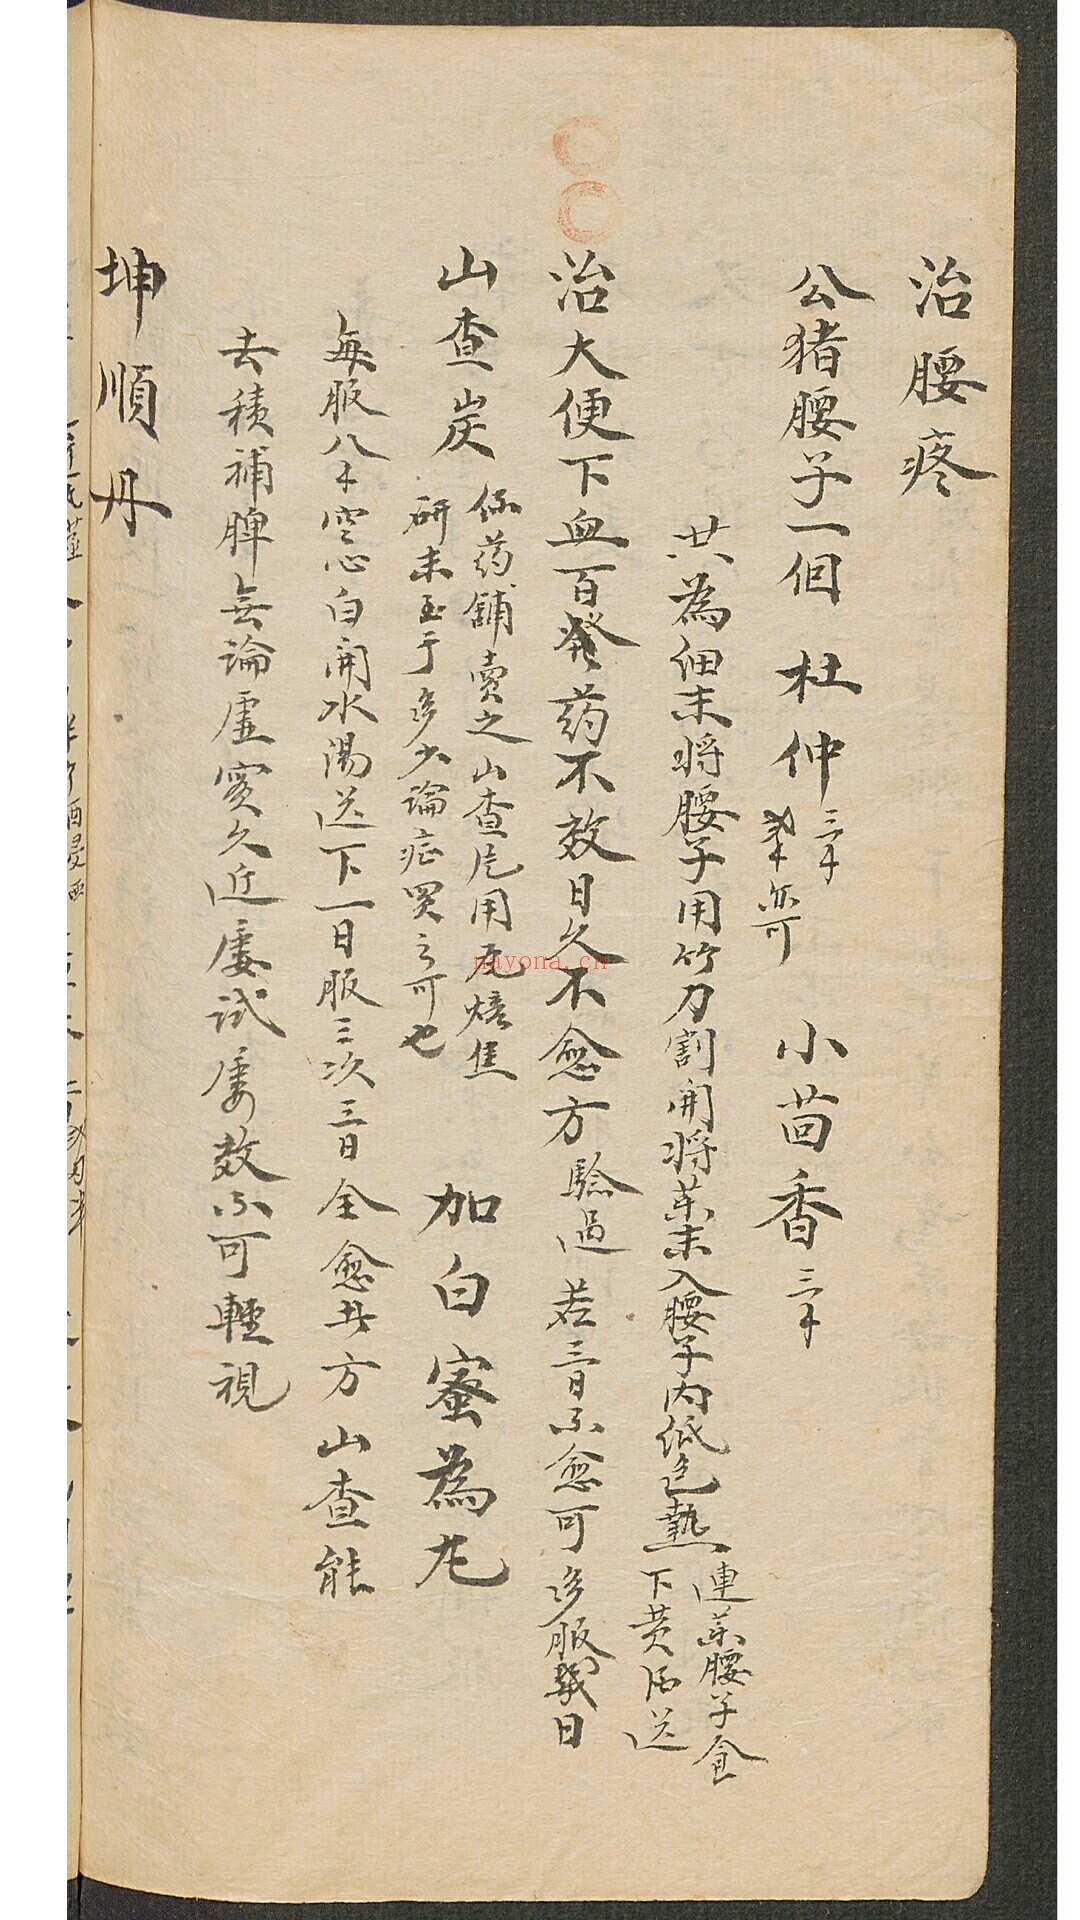 治腰疼
公猪腰子一個 杜仲三錢 弍錢亦可 小茴香三錢
共為細末將腰子用竹刀割開將藥末入腰子內低包熱 連藥腰子食下黄酒送
治大便下血百發药不效日久不愈方 驗過 若三日不愈可多服幾日
山查炭 係药舖賣之山查片用瓦焙焦研末 至于多少論症買之可也 加白蜜為丸
每服八錢空心白開水湯送下一日服三次三日全愈此方山查能
去積補脾無論虛實久近屢試屢效不可輕視
坤順丹
nayona.cn